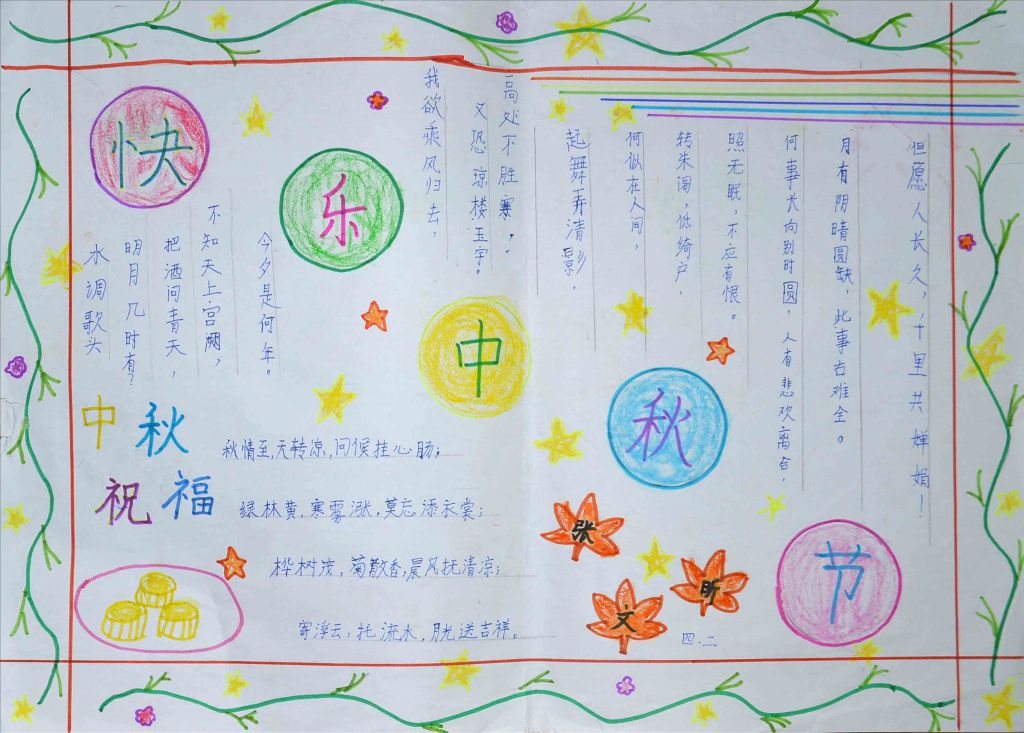 快
乐
中
秋
节
水调歌头
明月几时有？
把酒问青天，
不知天上宫阙，
今夕是何年。
我欲乘风归去，
又恐琼楼玉宇。
高处不胜寒，.
起舞弄清影，
何似在人间，
转朱阁，低绮户，
照无眠，不应有恨。
何事长向别时圆，人有悲欢离合，
月有阴晴圆缺，此事古难全。
但愿人长久，千里共婵娟！
中秋
祝福
秋情至，天转凉，问候挂心肠；
绿林黄，寒雾涨，莫忘添衣裳；
桦树茂，菊散香，晨风抚清凉；
寄浮云，托流水，月光送吉祥。
张
文
昕
四.二